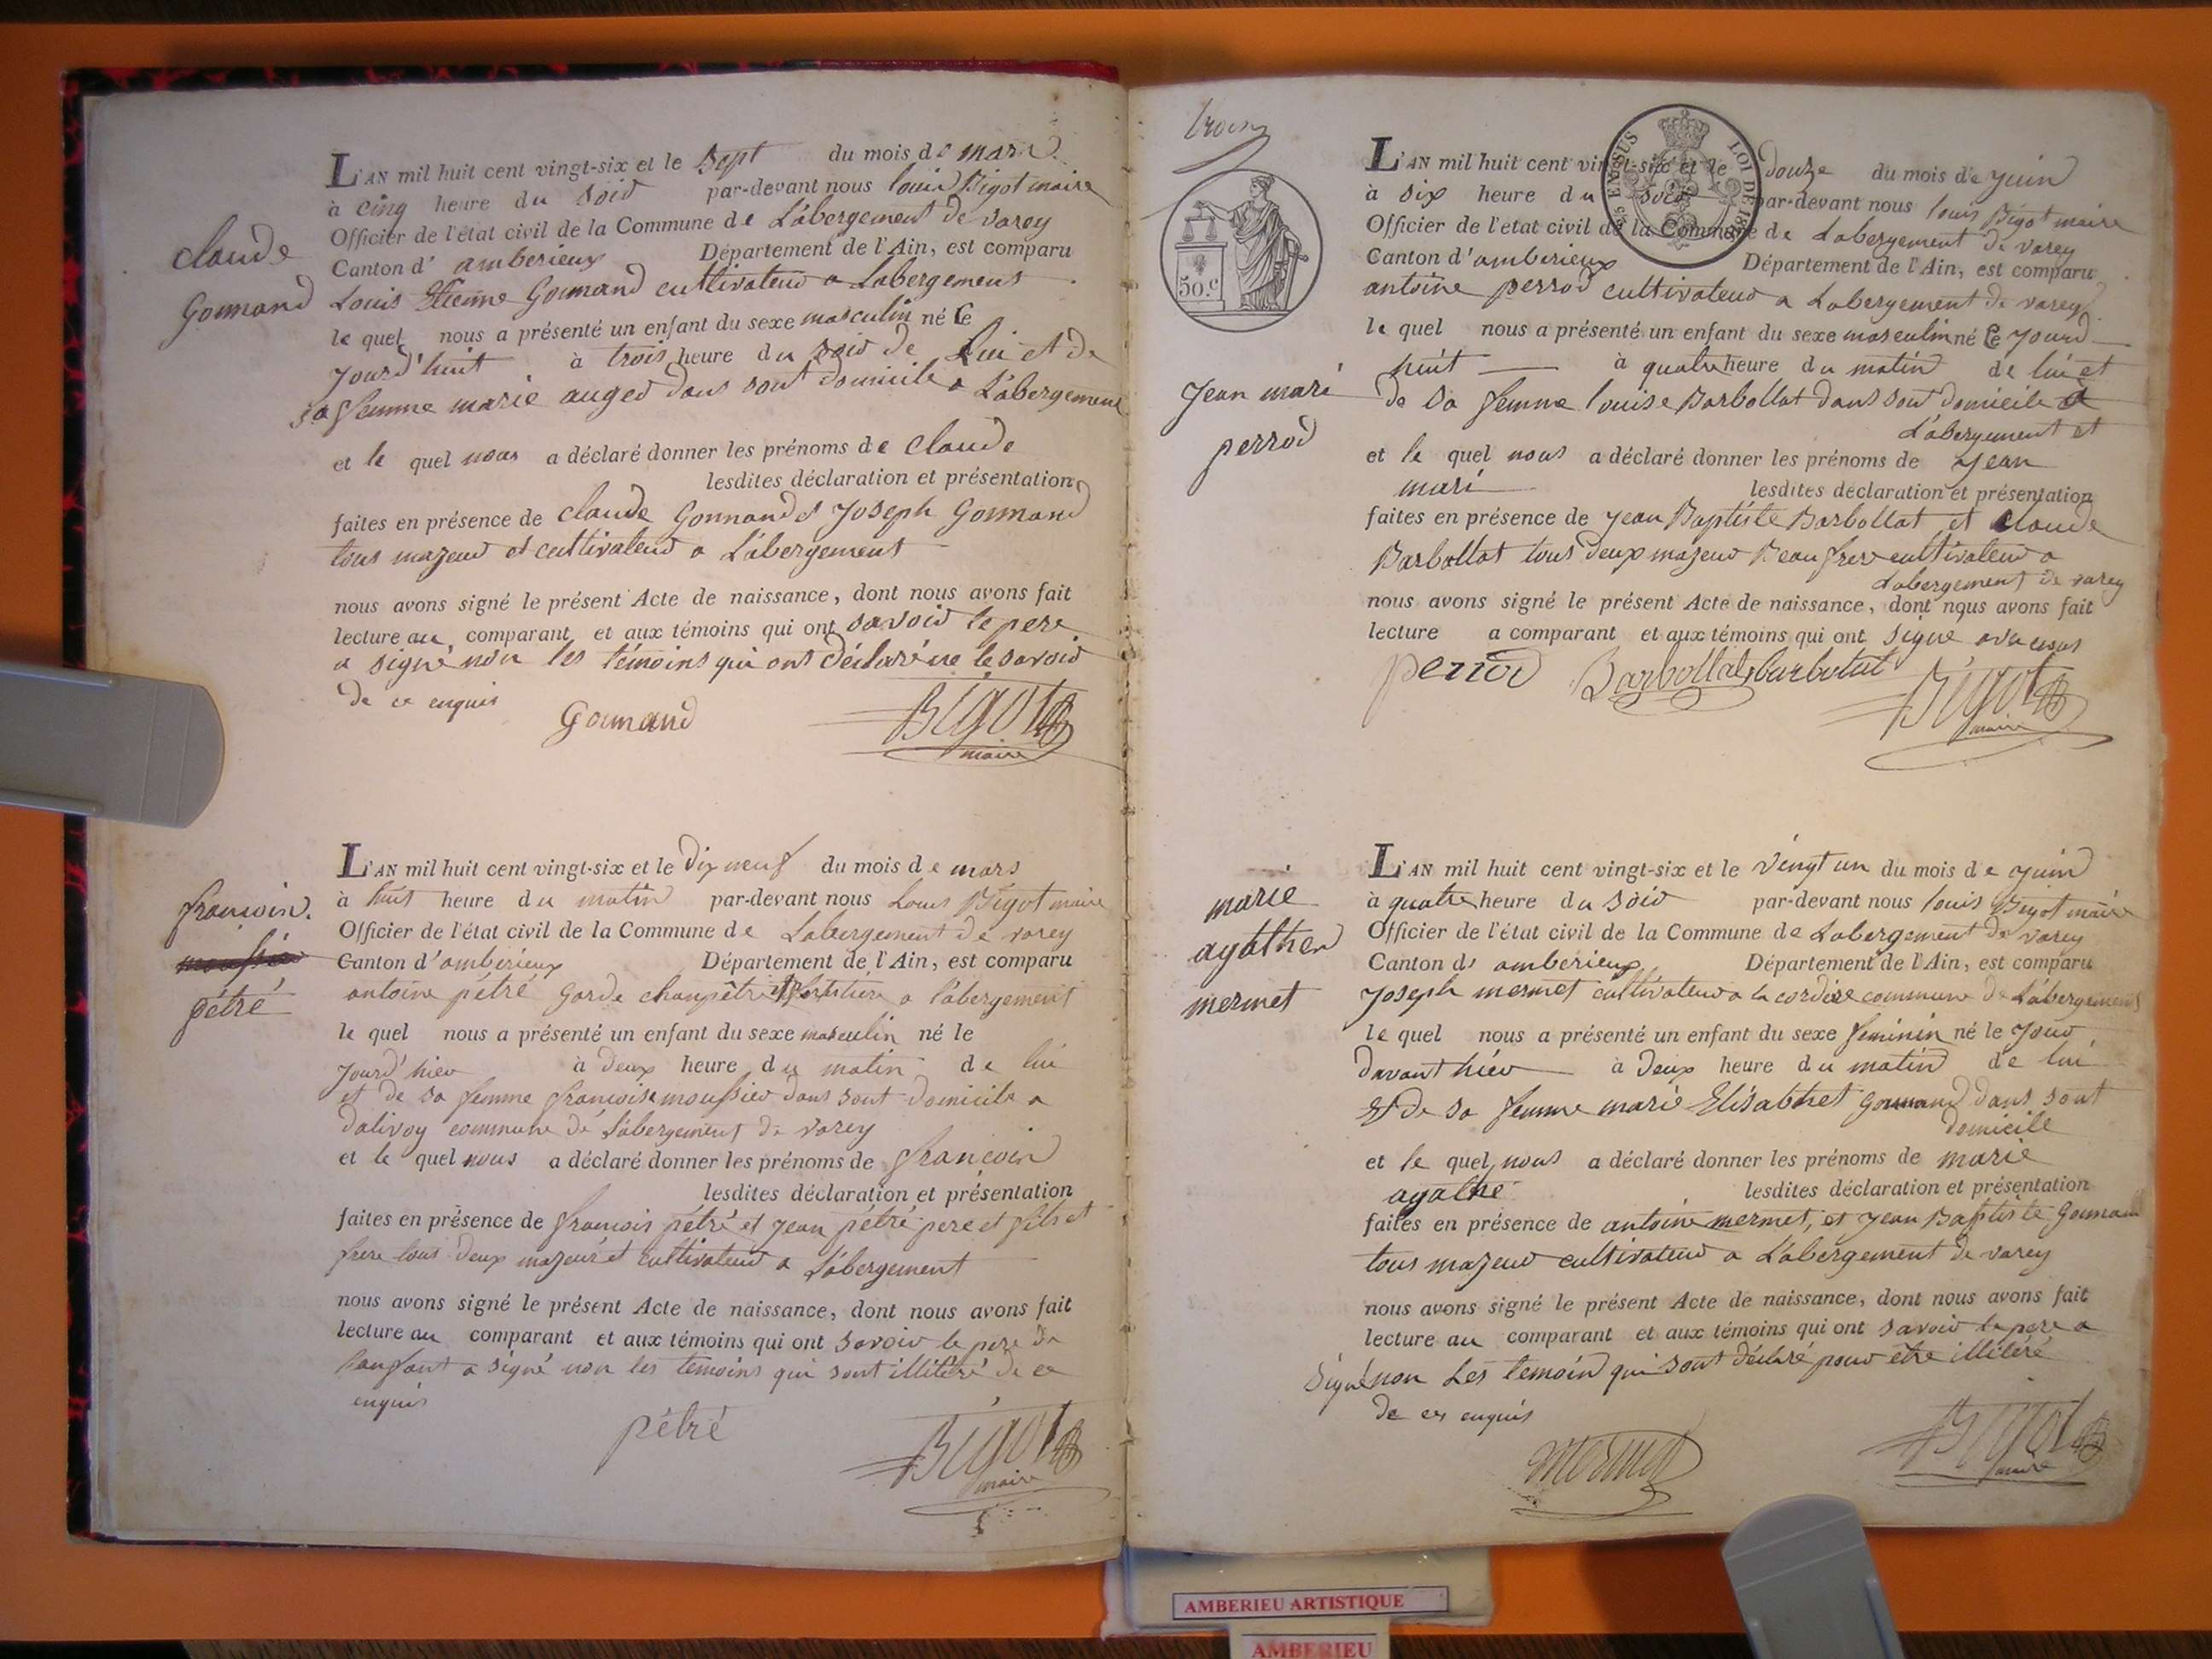 claude
Gonnand
L'AN mil huit cent vingt-six et le Sept du mois de mars
à cinq heure du soir par-devant nous louis Bigot maire
Officier de l'état civil de la Commune de Labergement de varey
Canton d' amberieux Département de l'Ain, est comparu
Louis Etienne Gonnand cultivateur a Labergement
le quel nous a présenté un enfant du sexe masculin né Ce
jourd'huit à trois heure du soir de Lui et de
sa femme marie auger dans sont domicile a L'abergement
et le quel nous a déclaré donner les prénoms de claude
lesdites déclaration et présentation
faites en présence de claude Gonnand et Joseph Gonnand
tous majeur et cultivateur a L'abergement
nous avons signé le présent Acte de naissance, dont nous avons fait
lecture au comparant et aux témoins qui ont savoir le pere
a signé non les témoins qui ont déclaré ne le savoir
de ce enquis
Gonnand
Bigot
maire
francoir.
pétré
L'AN mil huit cent vingt-six et le dix neuf du mois de mars
à huit heure du matin par-devant nous Louis Bigot maire
Officier de l'état civil de la Commune de Labergement de varey
Canton d'amberieux Département de l'Ain, est comparu
antoine pétré Garde champêtre et forestiere a l'abergement
le quel nous a présenté un enfant du sexe masculin né le
jourd'hier à deux heure du matin de lui
et de sa femme francoise moussier dans sont domicile a
dalivoy commune de L'abergement de varey
et le quel nous a déclaré donner les prénoms de francoir
lesdites déclaration et présentation
faites en présence de francois pétré et jean pétré pere et fils et
frere tous deux majeur et cultivateur a L'abergement
nous avons signé le présent Acte de naissance, dont nous avons fait
lecture au comparant et aux témoins qui ont savoir le pere de
lanfant a signé non les temoins qui sont illitéré de ce
enquis
pétré
Bigot
maire
trois
50.c
EN SUS
LOI DE
Jean mari
perrod
L'AN mil huit cent vingt-six et le douze du mois de juin
à six heure du soir par-devant nous louis Bigot maire
Officier de l'etat civil de la Commune de Labergement de varey
Canton d'amberieux Département de l'Ain, est comparu
antoine perrod cultivateur a Labergement de varey
le quel nous a présenté un enfant du sexe masculin né Ce jourd
huit à quatre heure du matin de lui et
de sa femme louise Barbollat dans sont domicile a
L'abergement et
et le quel nous a déclaré donner les prénoms de jean
mari lesdites déclaration et présentation
faites en présence de jean Baptiste Barbollat et claude
Barbollat tous deux majeur Beau frere cultivateur a
Labergement de varey
nous avons signé le présent Acte de naissance, dont nous avons fait
lecture a comparant et aux témoins qui ont signé avec nous
perrod Barbollat barbolat
Bigot
maire
marie
agathe
mermet
L'AN mil huit cent vingt-six et le vingt un du mois de juin
à quatre heure du soir par-devant nous louis Bigot maire
Officier de l'état civil de la Commune de Labergement de varey
Canton de amberieux Département de l'Ain, est comparu
Joseph mermet cultivateur a la cordiere commune de L'abergement
le quel nous a présenté un enfant du sexe feminin né le jour
davant hier à deux heure du matin de lui
et de sa femme marie Elisabhet Gonnand dans sont
domicile
et le quel nous a déclaré donner les prénoms de marie
agathe lesdites déclaration et présentation
faites en présence de antoine mermet, et jean Baptiste Gonnand
tous majeur cultivateur a L'abergement de varey
nous avons signé le présent Acte de naissance, dont nous avons fait
lecture au comparant et aux témoins qui ont savoir le pere a
signé non Les temoin qui sont déclaré pour etre illitéré
de ce enquis
mermet
Bigot
maire
AMBERIEU ARTISTIQUE
AMBERIEU